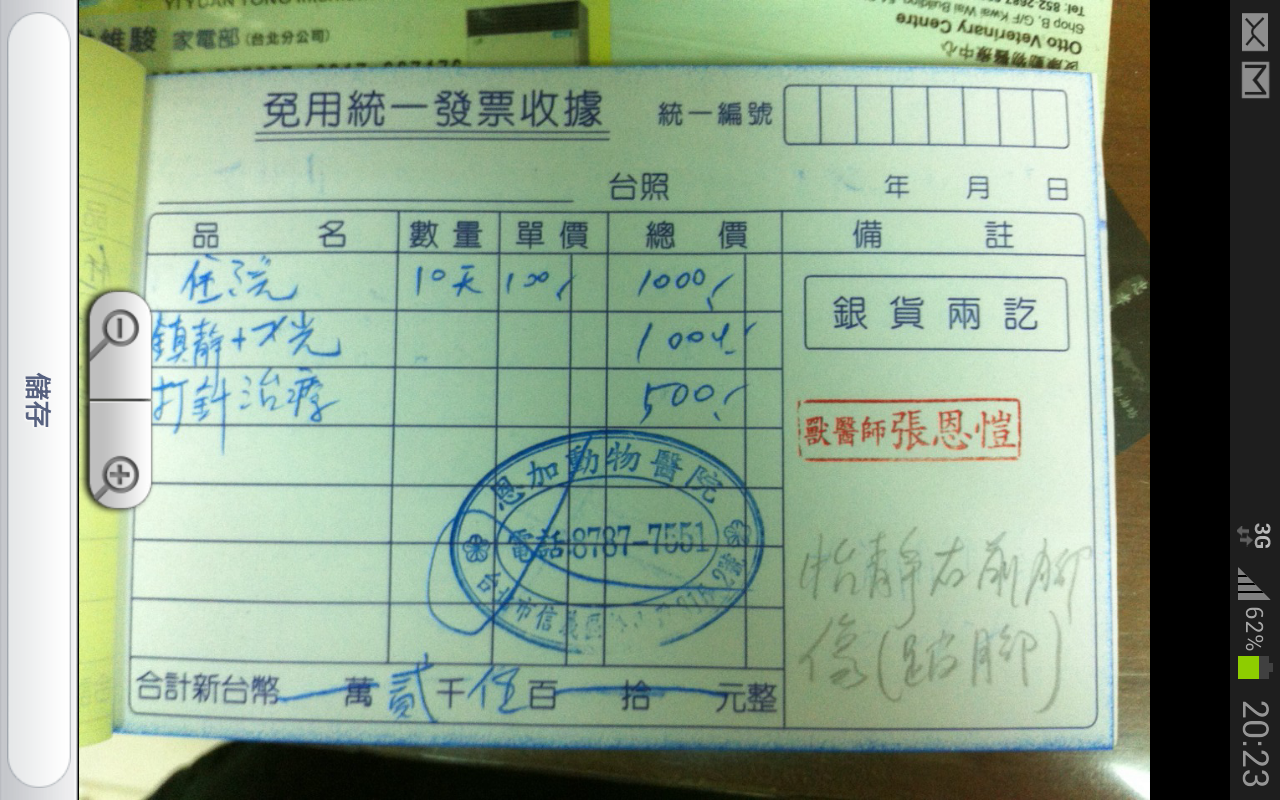 維駿 家電部 (台北分公司)
Otto Veterinary Centre
免用統一發票收據 統一編號
台照 年 月 日
品 名 數量 單價 總 價 備 註
住院 10天 100/ 1000/
鎮靜+X光 1000/
打針治療 500/
銀貨兩訖
獸醫師張恩愷
恩加動物醫院
電話:8787-7551
台北市信義區
2號
怡靜右前腳
傷(跛腳)
合計新台幣 萬貳千伍百 拾 元整
儲存
3G
62%
20:23